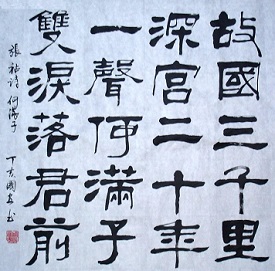 故國三千里
深宮二十年
一聲何滿子
雙淚落君前
張祜詩 何滿子
丁亥國